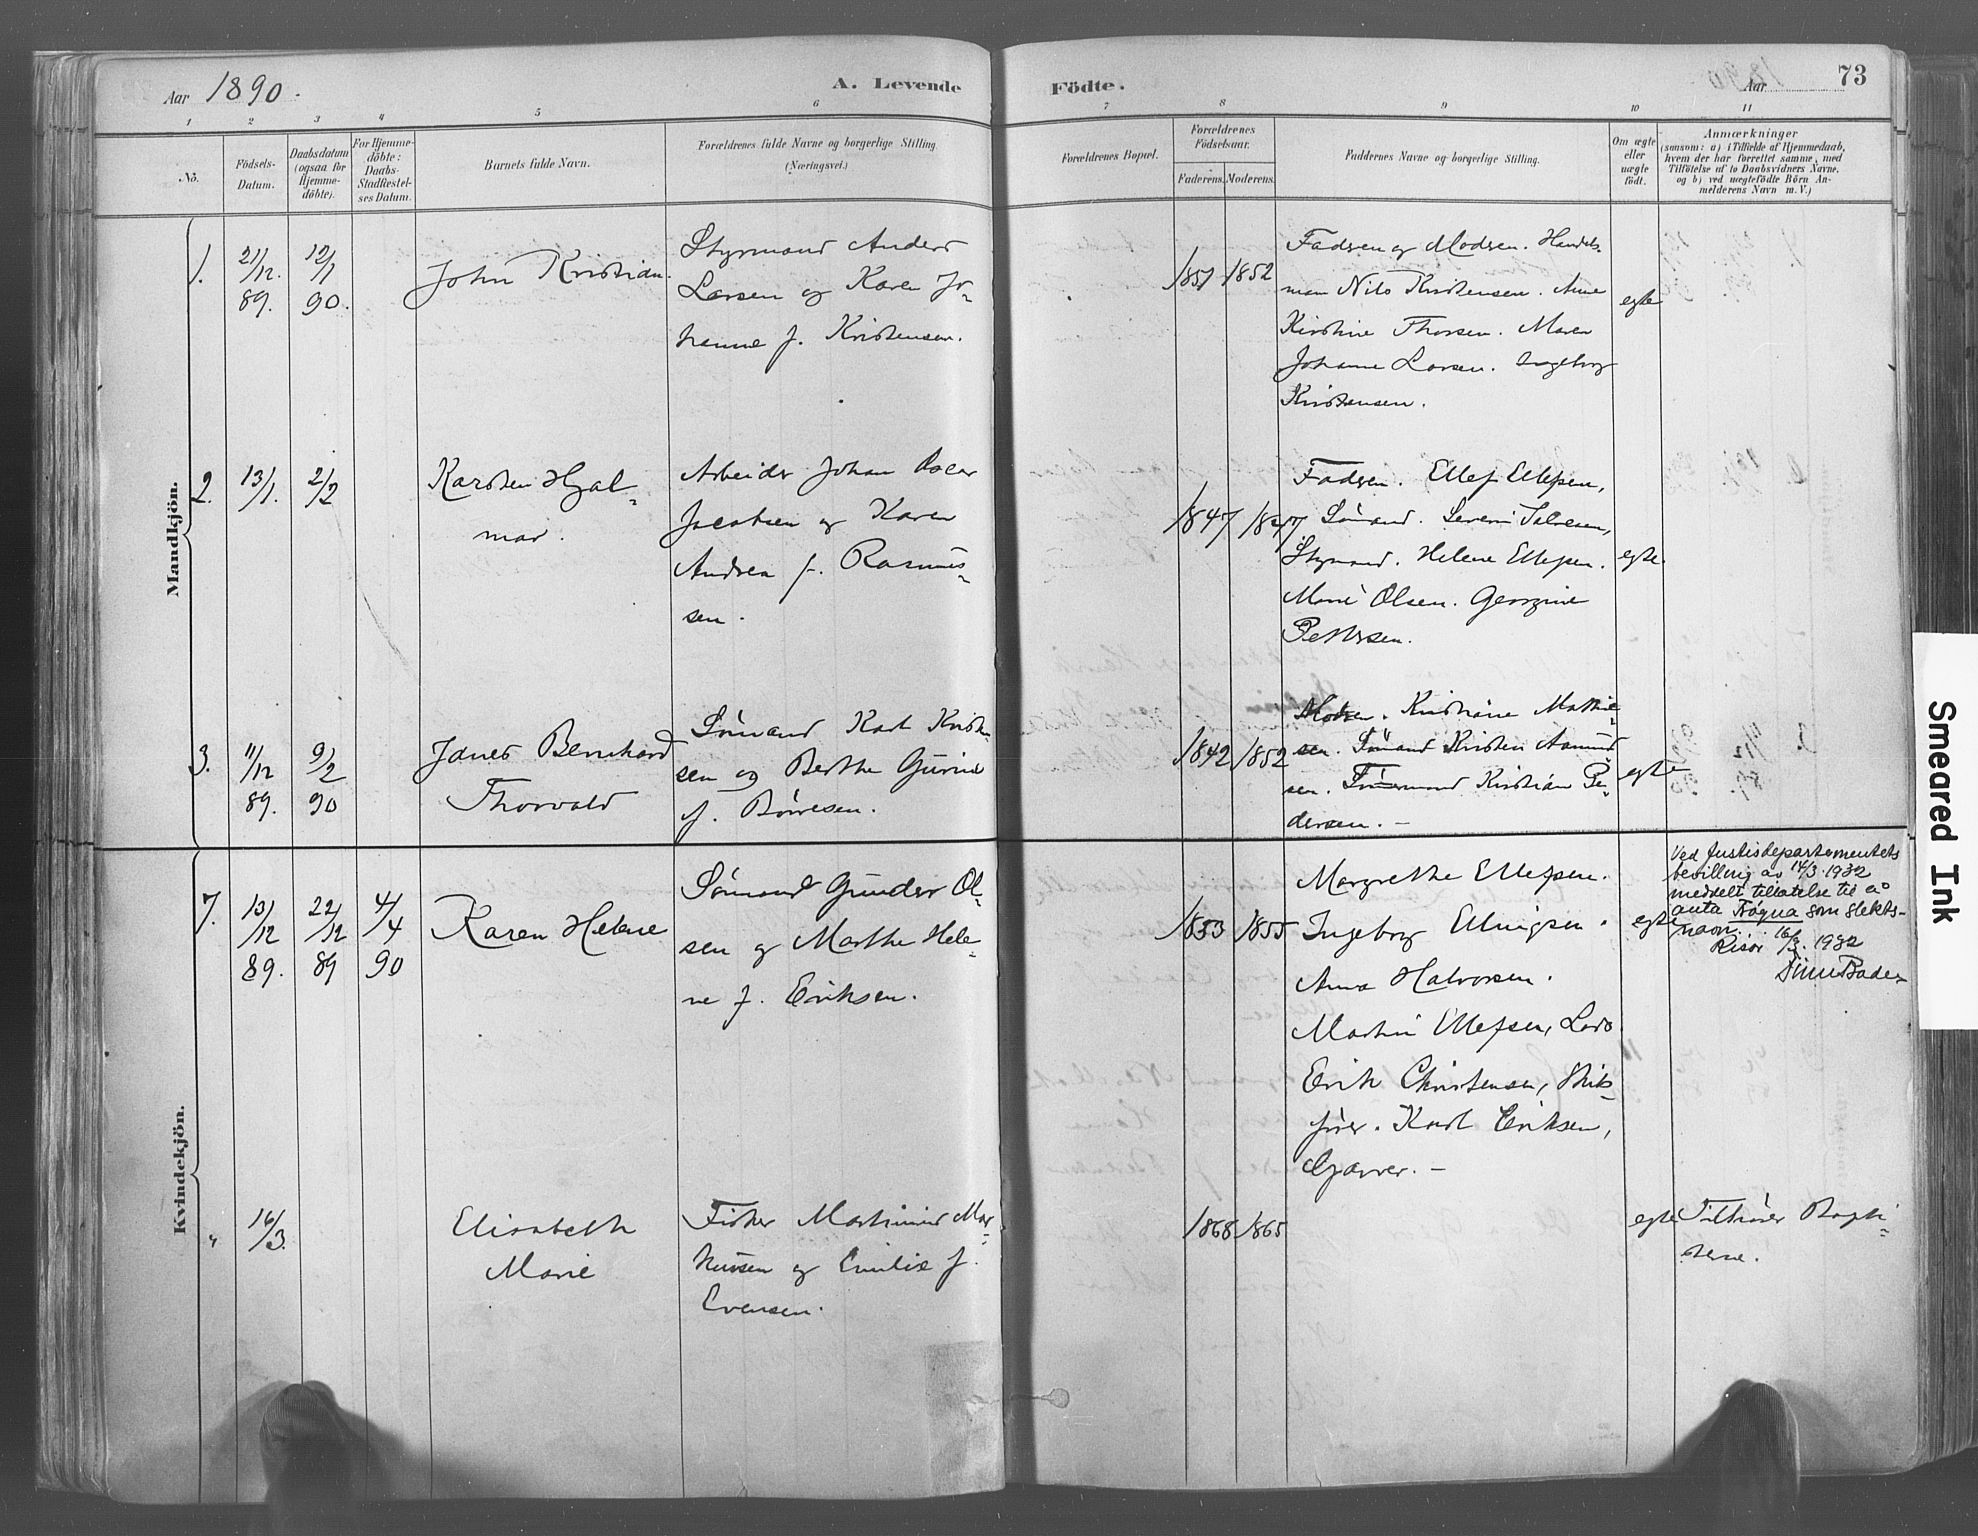 Aar 1890.
A. Levende
Födte.
Aar 1890
73
1 2 3 4 5 6 7 8 9 10 11
No.
Födsels-
Datum.
Daabsdatum
(ogsaa for
Hjemme-
döbte).
For Hjemme-
döbte:
Daabs-
Stadfæstel-
ses Datum.
Barnets fulde Navn.
Forældrenes fulde Navne og borgerlige Stilling
(Næringsvei.)
Forældrenes Bopæl.
Forældrenes
Födselsaar.
Faderens. Moderens.
Faddernes Navne og borgerlige Stilling.
Om ægte
eller
uægte
födt.
Anmærkninger
(saasom: a) i Tilfælde af Hjemmedaab,
hvem der har forrettet samme, med
Tilföielse af to Daabsvidners Navne,
og b) ved uægtefödte Börn An-
melderens Navn m. V.)
Mandkjön.
1.
21/12.
89.
12/1
90.
John Kristian.
Styrmand Anders
Larsen og Karen Jo-
hanne f. Kristensen.
1851 1852
Faderen og Moderen. Handels-
man Nils Kristensen. Anne
Kirstine Thorsen. Maren
Johanne Larsen. Ingeborg
Kristensen.
egte
2.
13/1.
2/2
Karsten Hjal-
mar.
Arbeider Johan Oscar
Jacobsen og Karen
Andrea f. Rasmus-
sen.
1847 1847
Faderen. Ellef Ellefsen,
Sömand. Severin
Styrmand. Helene Ellefsen.
Marie Olsen. Georgine
Pettersen.
egte.
3.
11/12
89.
9/2
90
Bernhard
Thorvald
Sömand Karl Kristen-
sen og Berthe Gurine
f. Börresen.
1842 1852
Moderen. Kristiane Mathie-
sen. Sömand Kristen Asmund-
sen. Tömmermand Kristian Pe-
dersen. –
egte
Kvindekjön.
7.
13/12
89.
22/12
89
4/4
90
Karen Helene
Sömand Gunder Ol-
sen og Marthe Hele-
ne f. Eriksen.
1853 1855
Margrethe Ellefsen.
Ingeborg
Anna Halvorsen.
Martin Ellefsen, Lods
Erik Christensen, Skibs-
förer. Karl Eriksen,
Garver. –
egte
Ved Justisdepartementets
bevilling av 14/3. 1932
meddelt tillatelse til å
anta Trögna som slekts-
navn.
Risör 16/3. 1932
"
16/3.
Elisabeth
Marie
Fisker Martinius Mar-
kussen og Emilie f.
Evensen.
1868 1865
egte
Tilhører Bapti-
sterne.
Smeared Ink